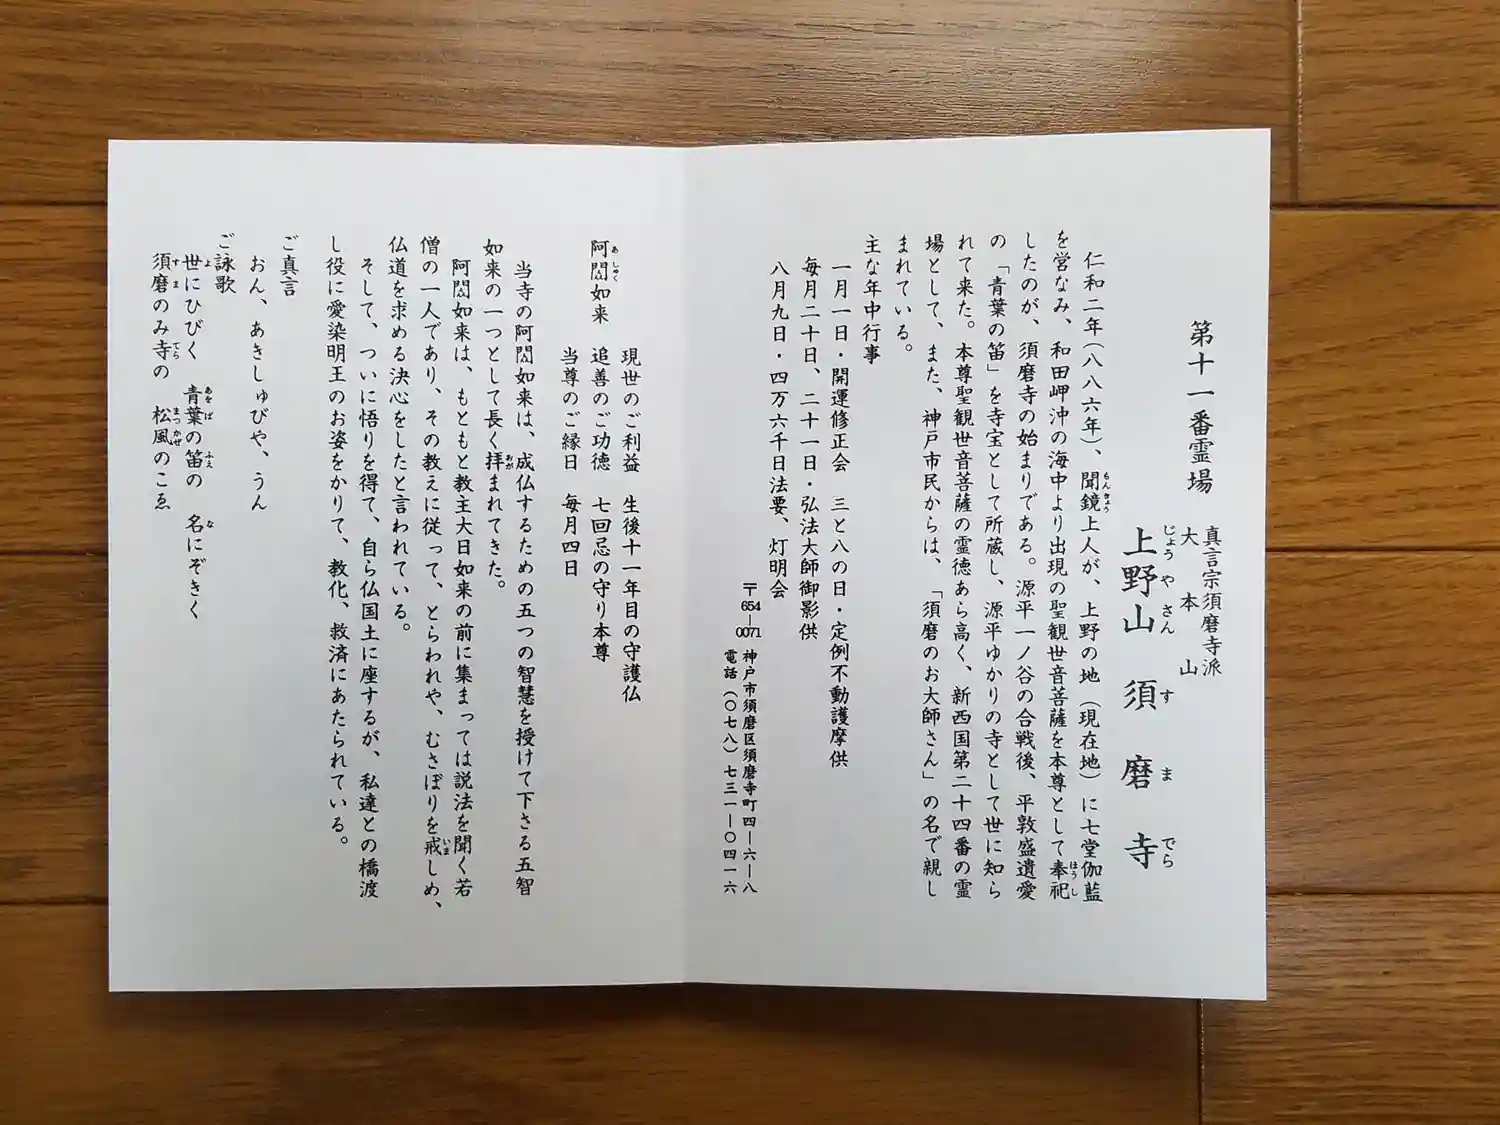 第十一番霊場
真言宗須磨寺派
大本山
上野山 須磨寺
仁和二年(八八六年)、聞鏡上人が、上野の地(現在地)に七堂伽藍
を営なみ、和田岬沖の海中より出現の聖観世音菩薩を本尊として奉祀
したのが、須磨寺の始まりである。源平一ノ谷の合戦後、平敦盛遺愛
の「青葉の笛」を寺宝として所蔵し、源平ゆかりの寺として世に知ら
れて来た。本尊聖観世音菩薩の霊徳あら高く、新西国第二十四番の霊
場として、また、神戸市民からは、「須磨のお大師さん」の名で親し
まれている。
主な年中行事
一月一日・開運修正会 三と八の日・定例不動護摩供
毎月二十日、二十一日・弘法大師御影供
八月九日・四万六千日法要、灯明会
〒654-0071 神戸市須磨区須磨寺町四-六-八
電話(〇七八)七三一-〇四一六
現世のご利益 生後十一年目の守護仏
阿閦如来 追善のご功徳 七回忌の守り本尊
当尊のご縁日 毎月四日
当寺の阿閦如来は、成仏するための五つの智慧を授けて下さる五智
如来の一つとして長く拝まれてきた。
阿閦如来は、もともと教主大日如来の前に集まっては説法を聞く若
僧の一人であり、その教えに従って、とらわれや、むさぼりを戒しめ、
仏道を求める決心をしたと言われている。
そして、ついに悟りを得て、自ら仏国土に座するが、私達との橋渡
し役に愛染明王のお姿をかりて、教化、救済にあたられている。
ご真言
おん、あきしゅびや、うん
ご詠歌
世にひびく 青葉の笛の 名にぞきく
須磨のみ寺の 松風のこゑ